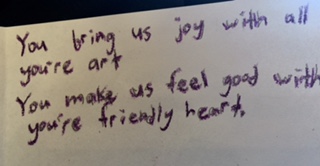 You bring us joy with all
you're art
You make us feel good with
you're friendly heart.